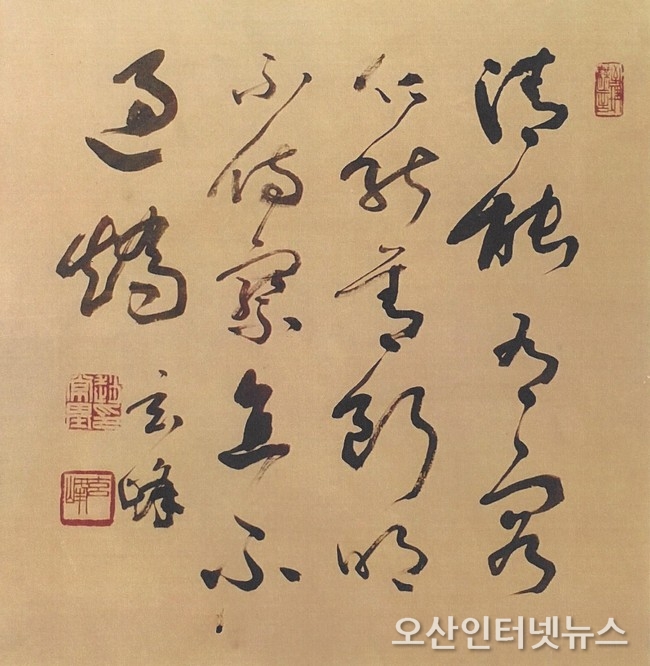 清能有容
仁能善斷明
不傷察直不
過矯
玄峰
오산인터넷뉴스